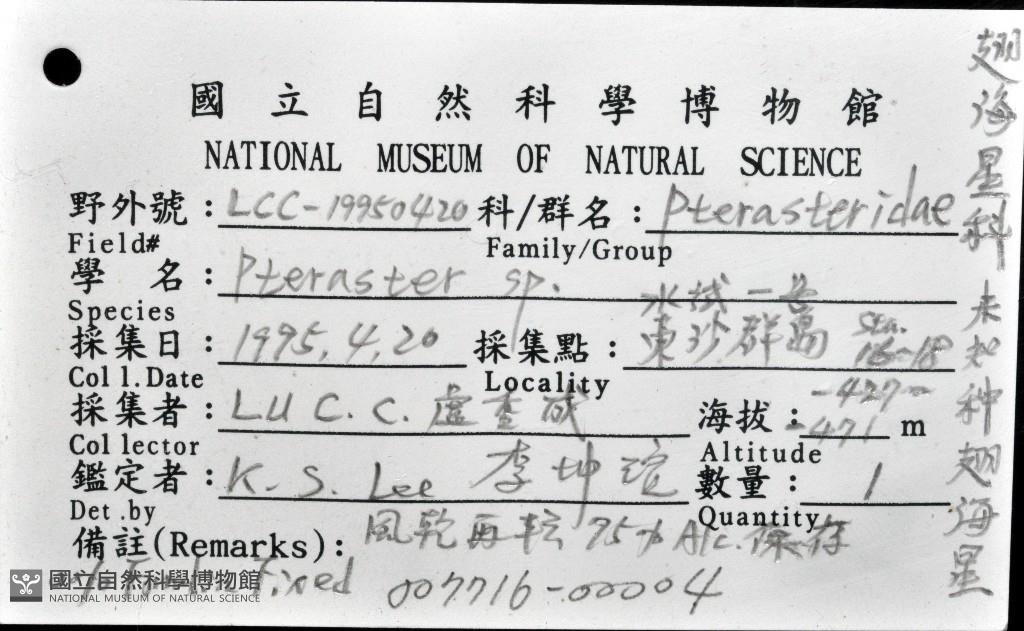 國立自然科學博物館
NATIONAL MUSEUM OF NATURAL SCIENCE
野外號：LCC-19950420 科/群名：Pterasteridae
Field# Family/Group
學名：Pteraster sp.
Species
水試一号
採集日：1995.4.20 採集點：東沙群島 Sta. 16-18
Coll.Date Locality
採集者：LU C.C. 盧重成 海拔：-427~-471 m
Collector Altitude
鑑定者：K.S. Lee 李坤瑄 數量：1
Det.by Quantity
備註(Remarks)：風乾再転 75% Alc.保存
Fixed 007716-00004
翅海星科 未知种翅海星
國立自然科學博物館
NATIONAL MUSEUM OF NATURAL SCIENCE